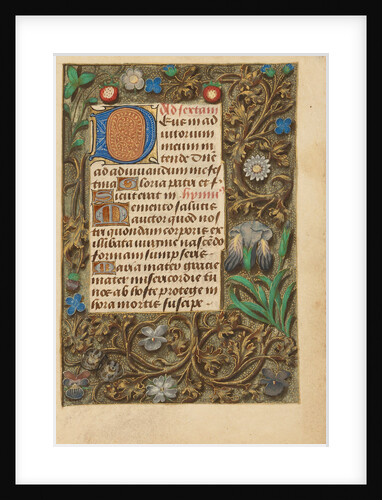 Ad sextam
Deus in ad
iutorium
meum in
tende Dne
ad adiuvandum me fe
stina Gloria patri et f
Sicut erat in hymn
Memento salutis
auctor quod nos
tri quondam corporis ex
illibata virgine nascēdo
formam sumpseris
Maria mater gratie
mater misericordie tu
nos ab hoste protege in
hora mortis suscipe